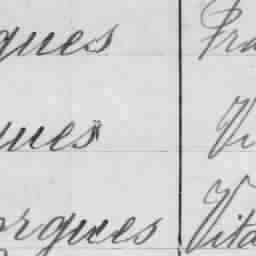 gues Fra
ues Vi
orgues Vita